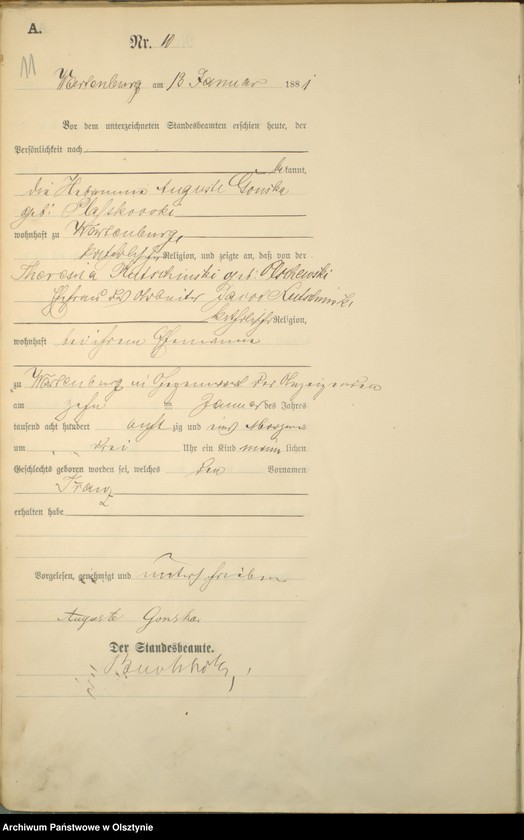 A.
Nr. 10
11
Wartenburg am 13 Januar 1881
Vor dem unterzeichneten Standesbeamten erschien heute, der
Persönlichkeit nach
bekannt,
die Hebamme Auguste Gonska
geb:
wohnhaft zu Wartenburg,
katholischer Religion, und zeigte an, daß von der
Theresia geb:
Ehefrau des Arbeiter
katholischer Religion,
wohnhaft bei ihrem Ehemanne
zu Wartenburg in Gegenwart der Anzeigenden
am zehn ten Januar des Jahres
tausend acht hundert acht zig und eins Morgens
um drei Uhr ein Kind männ lichen
Geschlechts geboren worden sei, welches den Vornamen
Franz
erhalten habe
Vorgelesen, genehmigt und unterschrieben
Auguste Gonska
Der Standesbeamte.
Archiwum Państwowe w Olsztynie